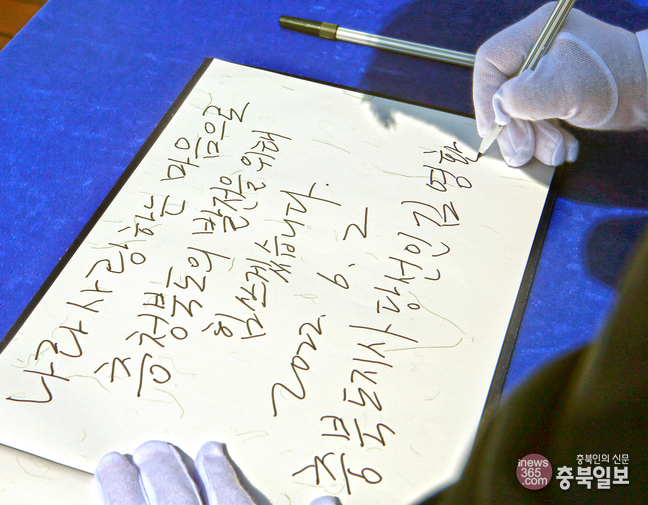 나라 사랑하는 마음으로
충청북도의 발전을 위해
힘쓰겠습니다.
2022. 6. 2
충북도지사 당선인 김영환
inews365.com
충북인의 신문
충북일보